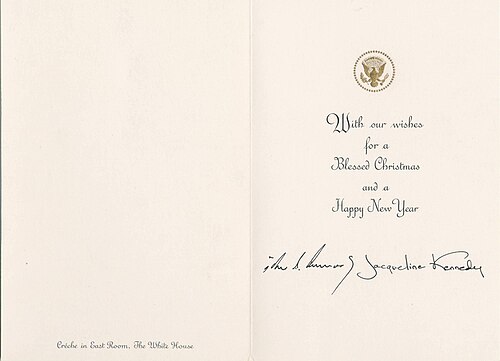 With our wishes
for a
Blessed Christmas
and a
Happy New Year
Jacqueline Kennedy
Crèche in East Room, The White House